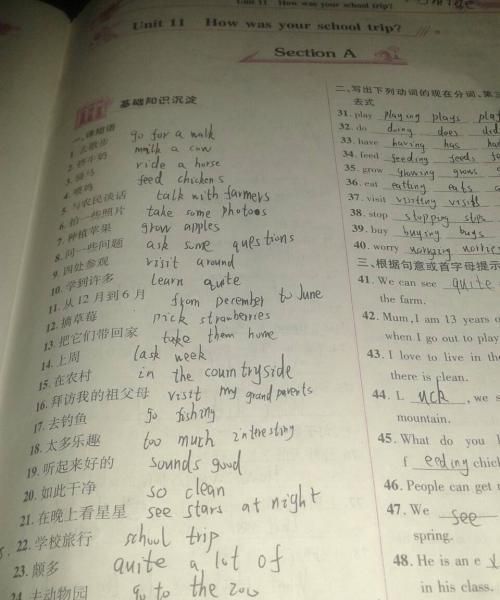 Unit 11 How was your school trip?
Unit 11 How was your school trip?
Section A
基础知识沉淀
一、译短语
1. 去散步 go for a walk
2. 挤牛奶 milk a cow
3. 骑马 ride a horse
4. 喂鸡 feed chickens
5. 与农民谈话 talk with farmers
6. 拍一些照片 take some photoos
7. 种植苹果 grow apples
8. 问一些问题 ask some questions
9. 四处参观 visit around
10. 学到许多 learn quite
11. 从12月到6月 from December to June
12. 摘草莓 pick strawberries
13. 把它们带回家 take them home
14. 上周 lask week
15. 在农村 in the countryside
16. 拜访我的祖父母 visit my grandparents
17. 去钓鱼 go fishing
18. 太多乐趣 too much interesting
19. 听起来好的 sounds good
20. 如此干净 so clean
21. 在晚上看星星 see stars at night
22. 学校旅行 school trip
23. 颇多 quite a lot of
24. 去动物园 go to the zoo
二、写出下列动词的现在分词、第三
去式
31. play playing plays
32. do doing does did
33. have having has
34. feed feeding feeds
35. grow growing grows
36. eat eatting eats
37. visit visiting visits
38. stop stopping stops
39. buy buying buys
40. worry worrying worries
三、根据句意或首字母提示
41. We can see quite
the farm.
42. Mum, I am 13 years
when I go out to play
43. I love to live in the
there is clean.
44. L uck , we s
mountain.
45. What do you
f eeding chick
46. People can get
47. We see
spring.
48. He is an e x
in his class.